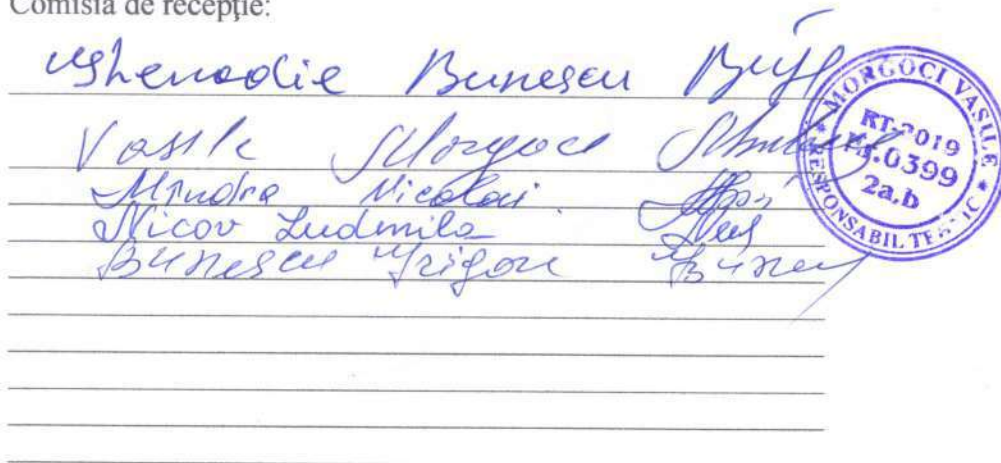 Comisia de recepție:
Ghenadie Bunescu
Vasile Morgoci
Mîndra Nicolai
Nicov Ludmila
Bunescu Grigore
* MORGOCI VASILE *
RESPONSABIL TEHNIC
RT-2019
Nr.0399
2a,b